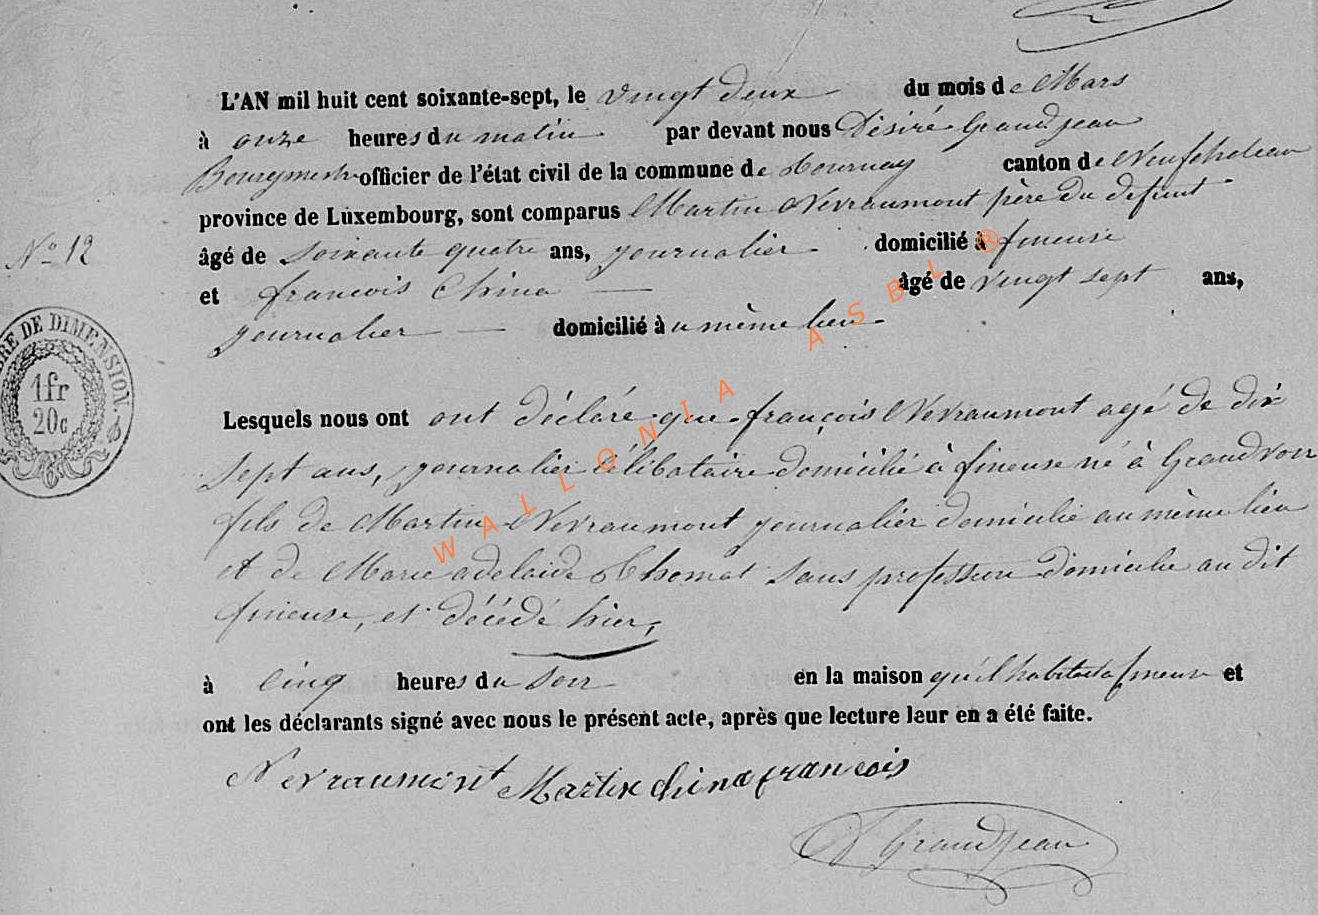 L'AN mil huit cent soixante-sept, le vingt deux du mois de Mars
à onze heures du matin par devant nous Désiré Grandjean
Bourgmestre officier de l'état civil de la commune de Tournay canton de Neufchateau
province de Luxembourg, sont comparus Martin Nevraumont père du defunt
âgé de soixante quatre ans, journalier domicilié à fineuse
N° 12
et francois China âgé de vingt sept ans,
journalier domicilié au même lieu
BRE DE DIMENSION.
1fr
20c
Lesquels nous ont ont déclaré que françois Nevraumont agé de dix
sept ans, journalier célibataire domicilié à fineuse né à Grandvoir
fils de Martin Nevraumont journalier domicilié au même lieu
et de Marie adelaide Thomas sans profession domicilié au dit
fineuse, est décédé hier,
à cinq heures du soir en la maison qu'il habitait a fineuse et
ont les déclarants signé avec nous le présent acte, après que lecture leur en a été faite.
Nevraumont Martin China francois
D Grandjean
WALLONIA ASBL ®